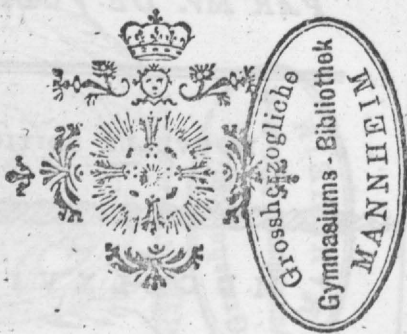 Grossherzogliche
Gymnasiums-Bibliothek
MANNHEIM